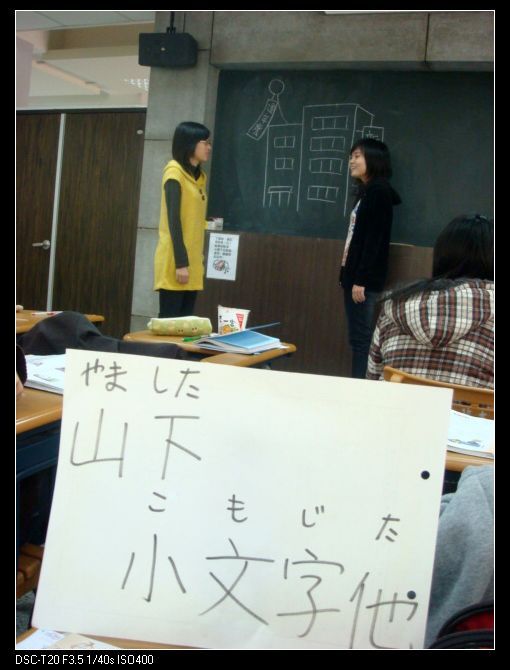 やました
山下
こもじた
小文字他
DSC-T20 F3.5 1/40s ISO400